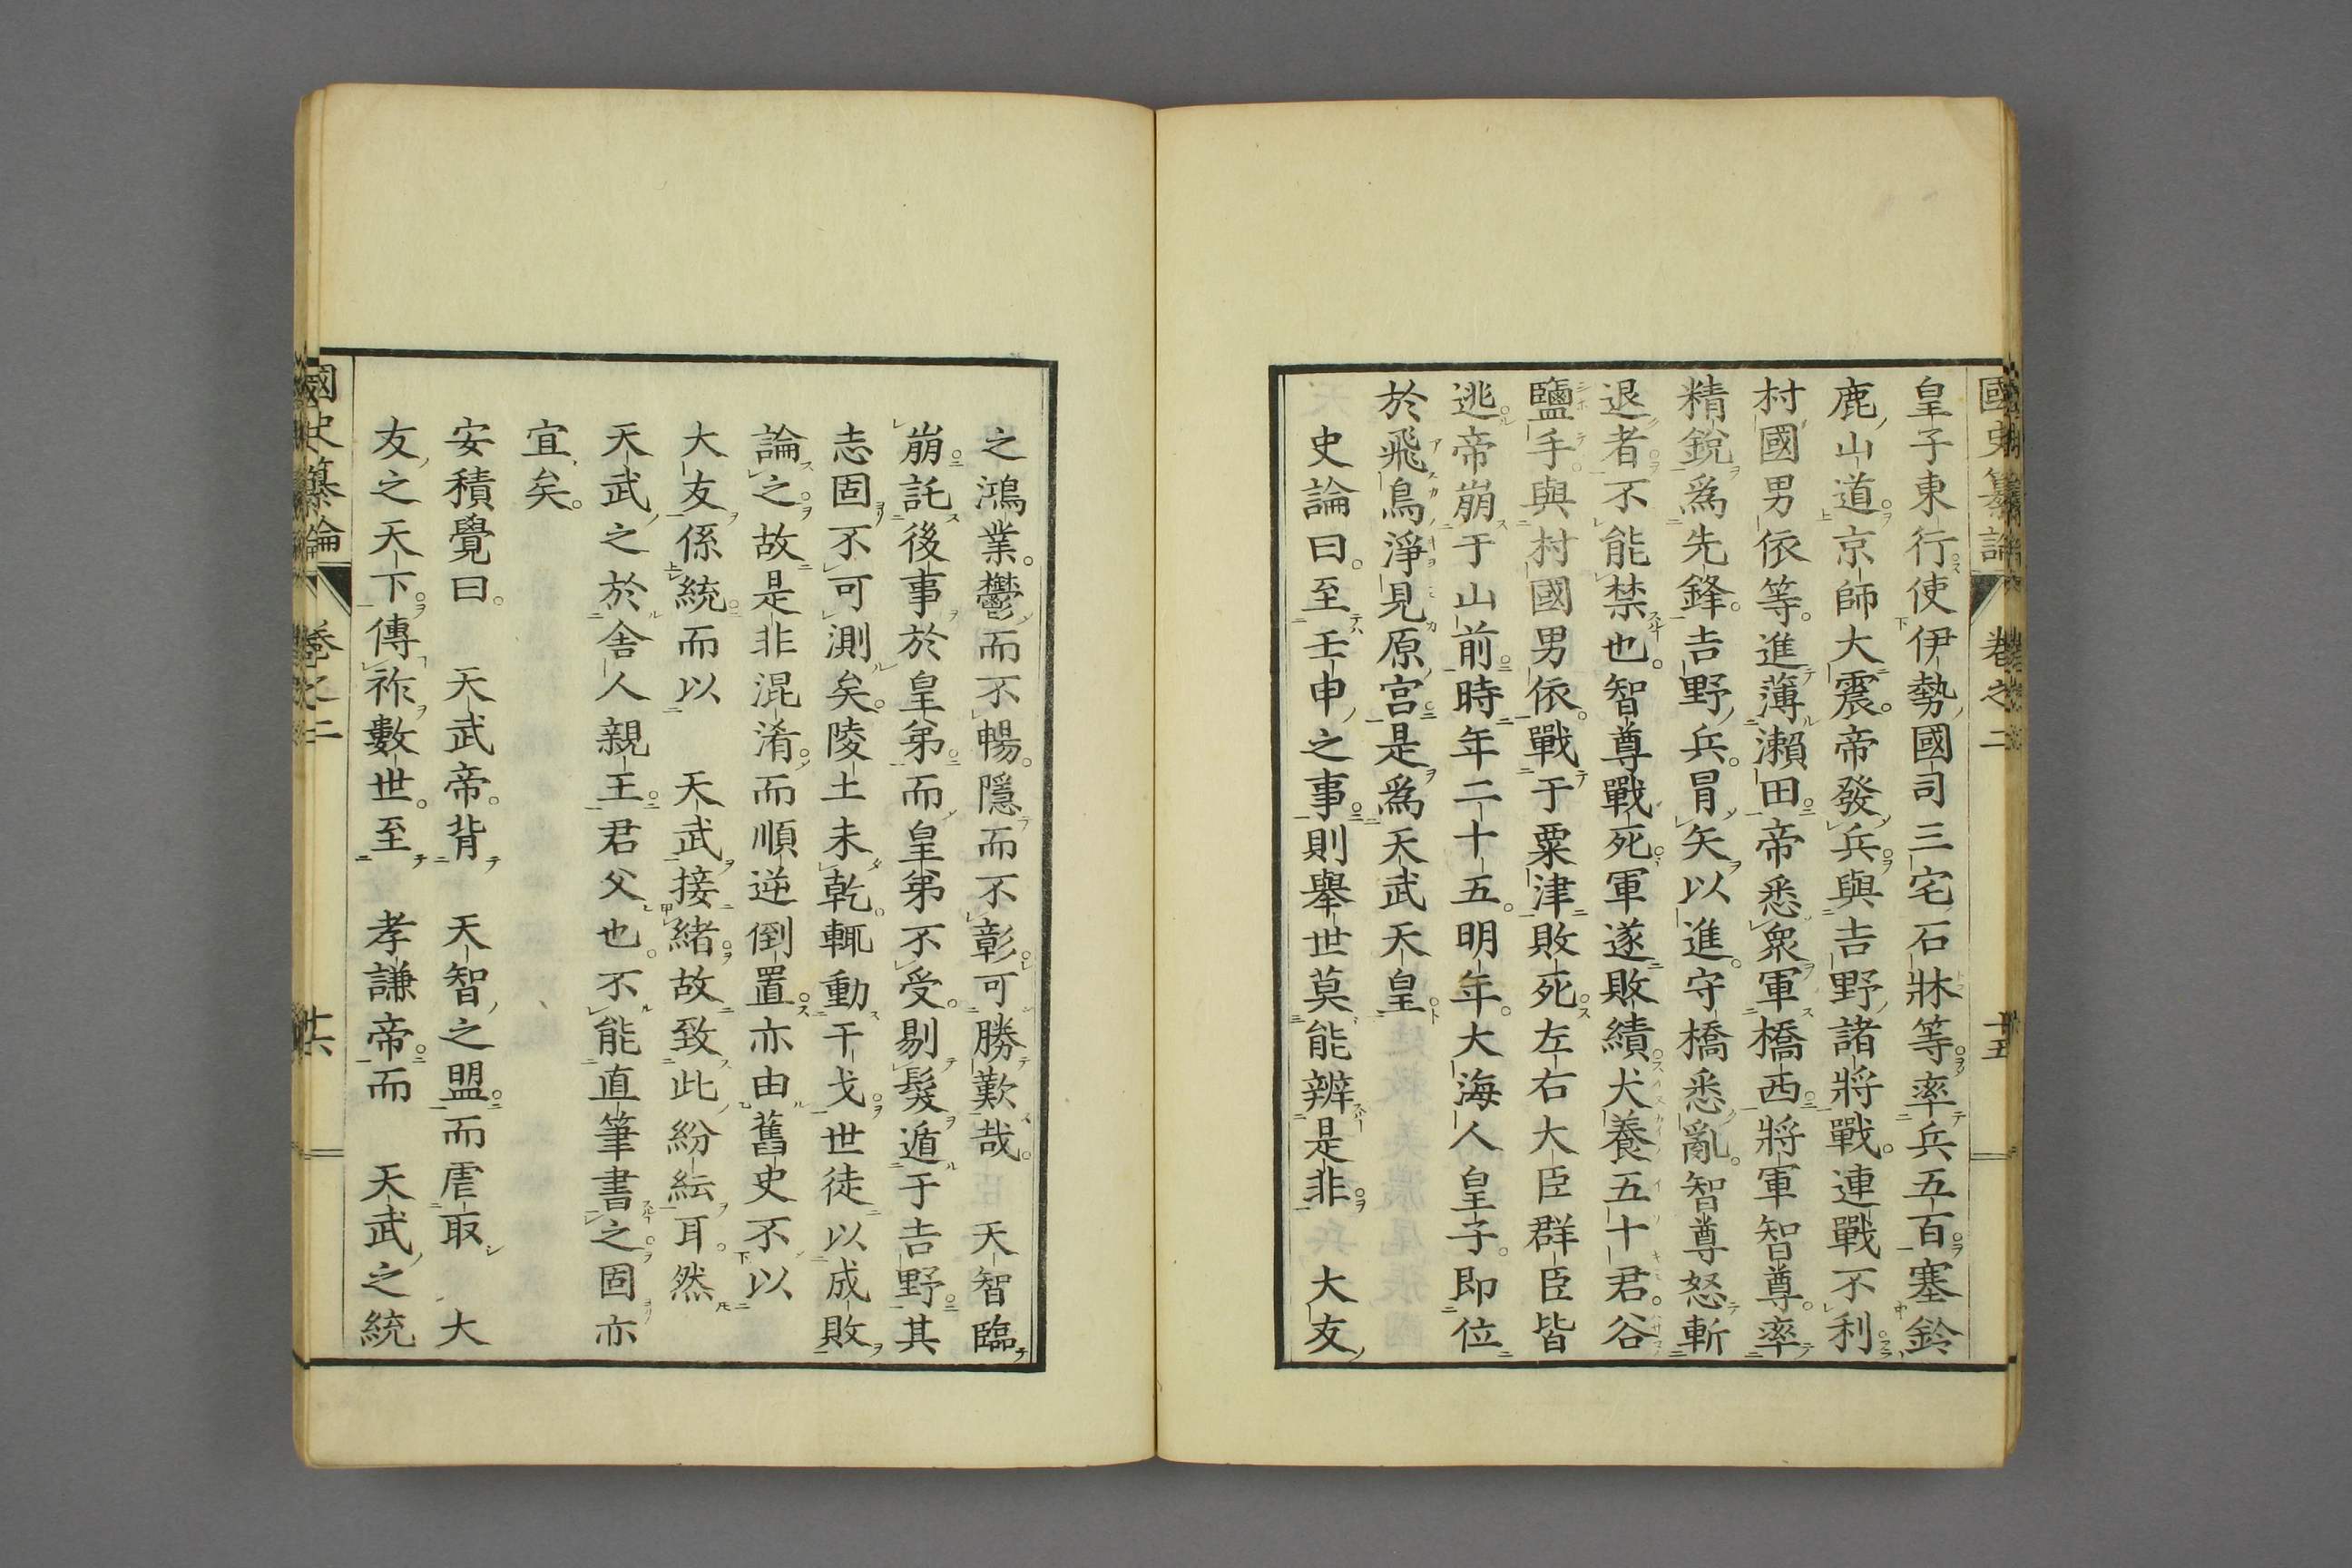 國史纂論 卷之二 十五
皇子東行使伊勢國司三宅石牀等率兵五百塞鈴
鹿山道京師大震帝發兵與吉野諸將戰連戰不利
村國男依等進薄瀨田帝悉衆軍橋西將軍智尊率
精銳爲先鋒吉野兵冒矢以進守橋悉亂智尊怒斬
退者不能禁也智尊戰死軍遂敗績犬養五十君谷
鹽手與村國男依戰于粟津敗死左右大臣群臣皆
逃帝崩于山前時年二十五明年大海人皇子即位
於飛鳥淨見原宮是爲天武天皇
史論曰至壬申之事則舉世莫能辨是非　大友
之鴻業鬱而不暢隱而不彰可勝歎哉　天智臨
崩託後事於皇弟而皇弟不受剔髮遁于吉野其
志固不可測矣陵土未乾輒動干戈世徒以成敗
論之故是非混淆而順逆倒置亦由舊史不以
大友係統而以　天武接緒故致此紛紜耳然
天武之於舍人親王君父也不能直筆書之固亦
宜矣
安積覺曰　天武帝背　天智之盟而虐取　大
友之天下傳祚數世至　孝謙帝而　天武之統
國史纂論 卷之二 十六